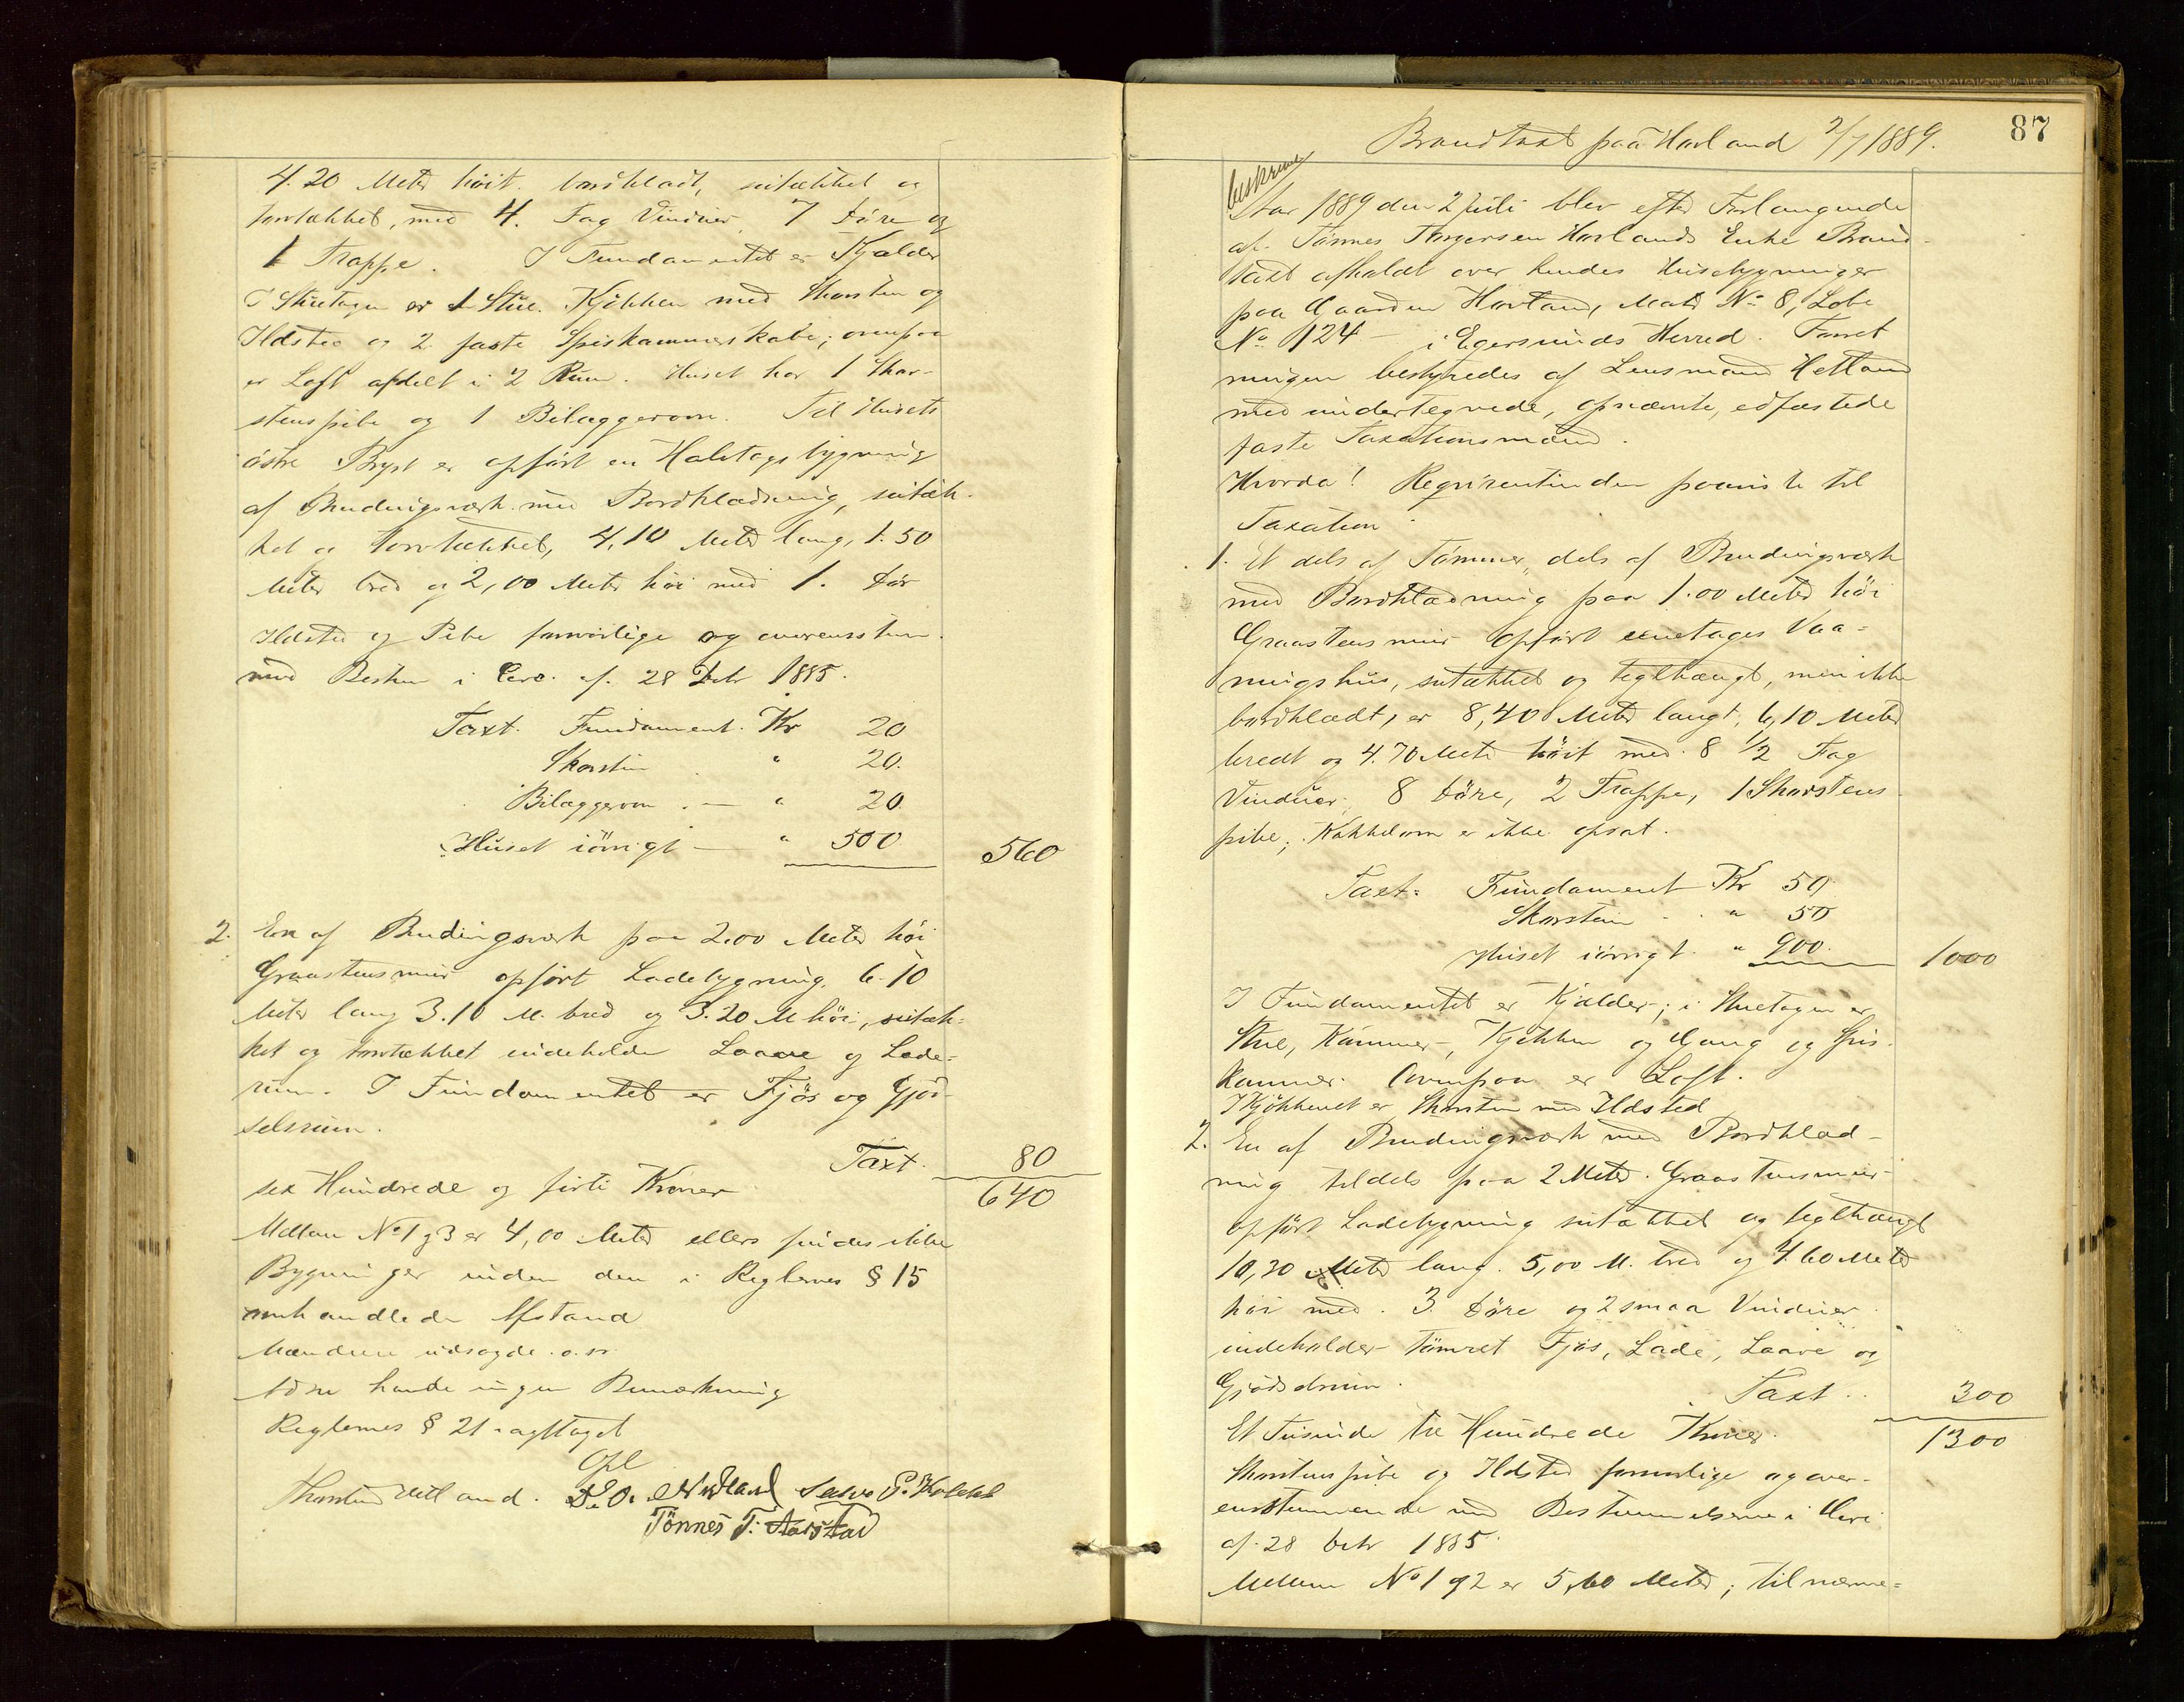 4.20 Meter höit. bordklædt, suitækket og
torvtækket, med 4. Fag Vinduer, 7 Döre og
1 Trappe. I Fundamentet er Kjælder
I Stuetagen er 1 Stue. Kjökken med Skorsten og
Ildsted og 2 faste Spiskammerskabe; ovenpaa
er Loft afdelt i 2 Rum. Huset har 1 Skor-
stenspibe og 1 Bilæggerovn. Til Husets
östre Bryst er opfört en Halvtagsbygning
af Bindingsværk med Bordklædning, suitæk-
ket og torvtækket, 4,10 Meter lang, 1.50
Meter bred og 2,00 Meter höi med 1. Dör
Ildsted og Pibe forsvarlige og overensstem.
med Bestem i Circ. af 28 Debr 1885.
Taxt. Fundament. Kr 20
Skorstein " 20.
Bilæggerovn. — " 20.
Huset iövrigt — " 500 560
2. En af Bindingsværk paa 2.00 Meter höi
Graastensmur opfört Ladebygning. 6.10
Meter lang 3.10 M. bred og 3.20 M höi, suitæk-
ket og torvtækket indeholder Laave og Lade-
rum. I Fundamentet er Fjös og Gjöd-
selsrum.
Taxt. 80
sex Hundrede og firti Kroner 640
Mellem No 1 og 3 er 4,00 Meter ellers findes ikke
Bygninger inden den i Reglernes § 15
omhandlede Afstand
Mændene udsagde. o. sv.
havde ingen Bemærkning
Reglernes § 21 iagttaget
Opl
Thorsten Hetland. D. O. Nedland
Tönnes T. Aarstad
87
Brandtaxt paa Havland 2/7 1889.
beskreven
Aar 1889 den 2 Juli blev efter Forlangende
af Tönnes Torgersen Havlands Enke Brand-
taxt afholdt over hendes Husebygninger
paa Gaarden Havland, Matr No 8, Löbe
No 124 — i Egersunds Herred. Forret
ningen bestyredes af Lensmand Hetland
med undertegnede, opnævnte, edfæstede
faste Taxationsmænd.
Hvorda! Reqvirentinden paaviste til
Taxation
1. Et dels af Tömmer, dels af Bindingsværk
med Bordklædning paa 1.00 Meter höi
Graastensmur opfört eenetages Vaa-
ningshus, suitækket og teglhængt, men ikke
bordklædt, er 8,40 Meter langt, 6,10 Meter
bredt og 4.70 Meter höit med 8 1/2 Fag
Vinduer, 8 Döre, 2 Trappe, 1 Skorstens-
pibe; Kakkelovn er ikke opsat.
Taxt: Fundament Kr 50
Skorsten " 50
Huset iövrigt " 900. 1000
I Fundamentet er Kjælder; i Stuetagen er
Stue, Kammer, Kjökken og Gang og Spis-
kammer. Ovenpaa er Loft.
I Kjökkenet er Skorsten med Ildsted
2. En af Bindingsværk med Bordklæd-
ning tildels paa 2 Meter Graastensmur
opfört Ladebygning suitækket og teglhængt
10,30 Meter lang. 5,00 M. bred og 4.60 Meter
höi med 3 Döre og 2 smaa Vinduer
indeholder tömret Fjös, Lade, Laave og
Gjödselrum. Taxt.. 300
Et Tusinde tre Hundrede Kroner. 1300
Skorstenspibe og Ildsted forsvarlige og over-
ensstemmende med Bestemmelserne i Circ
af 28 Debr 1885.
Mellem No 1 og 2 er 5,60 Meter; til nærme-